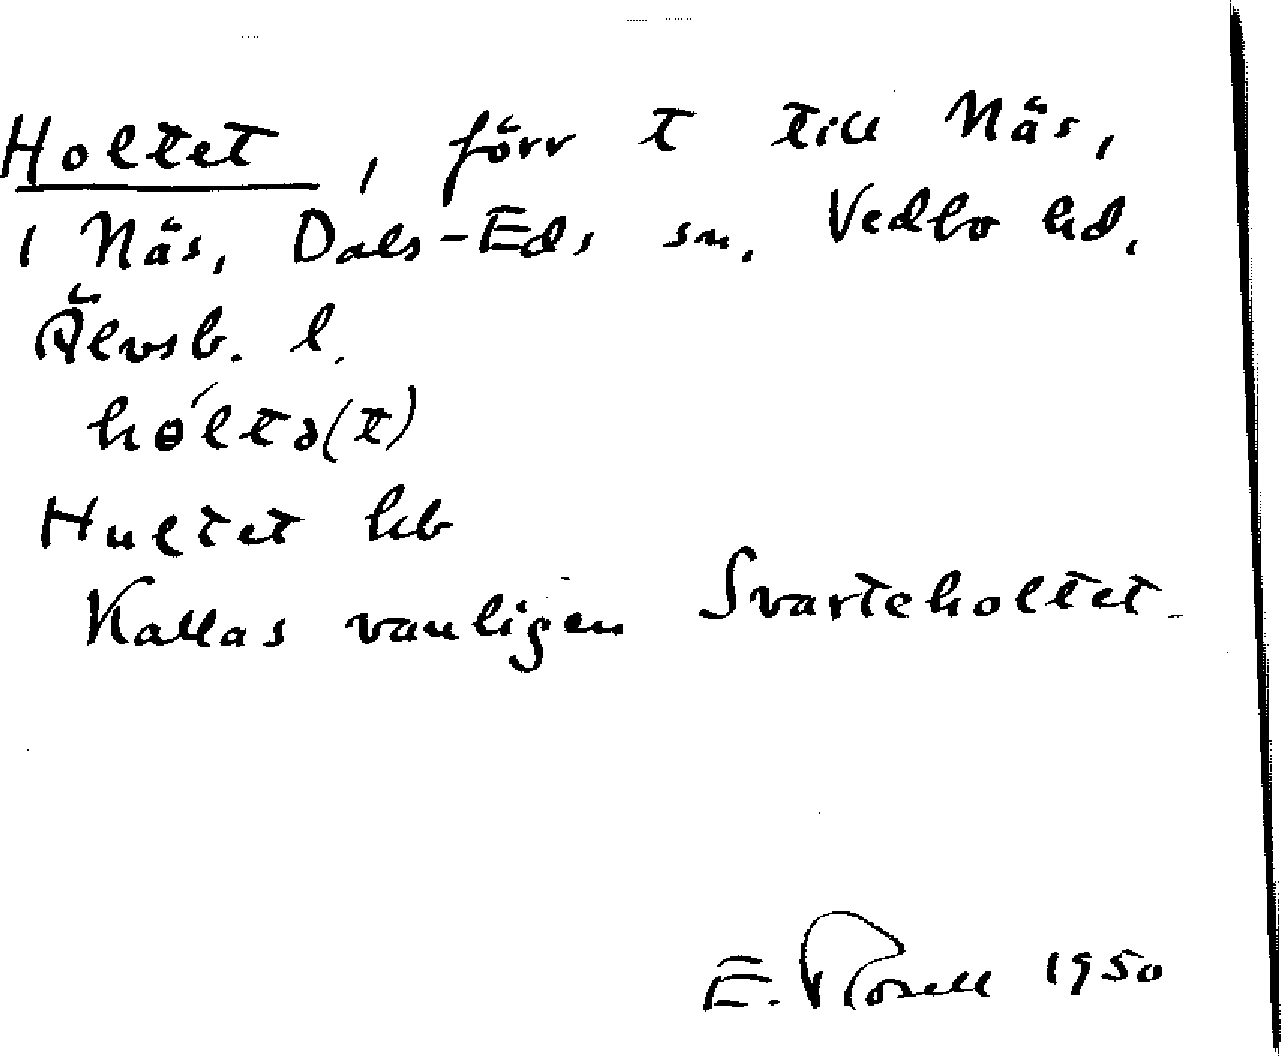 Holtet, förr t till Näs,
1 Näs, Dals-Eds sn. Vedbo hd.
Älvsb. l.
hɵ́ltə(t)
Hultet kb
Kallas vanligen Svarteholtet.
E. Rosell 1950